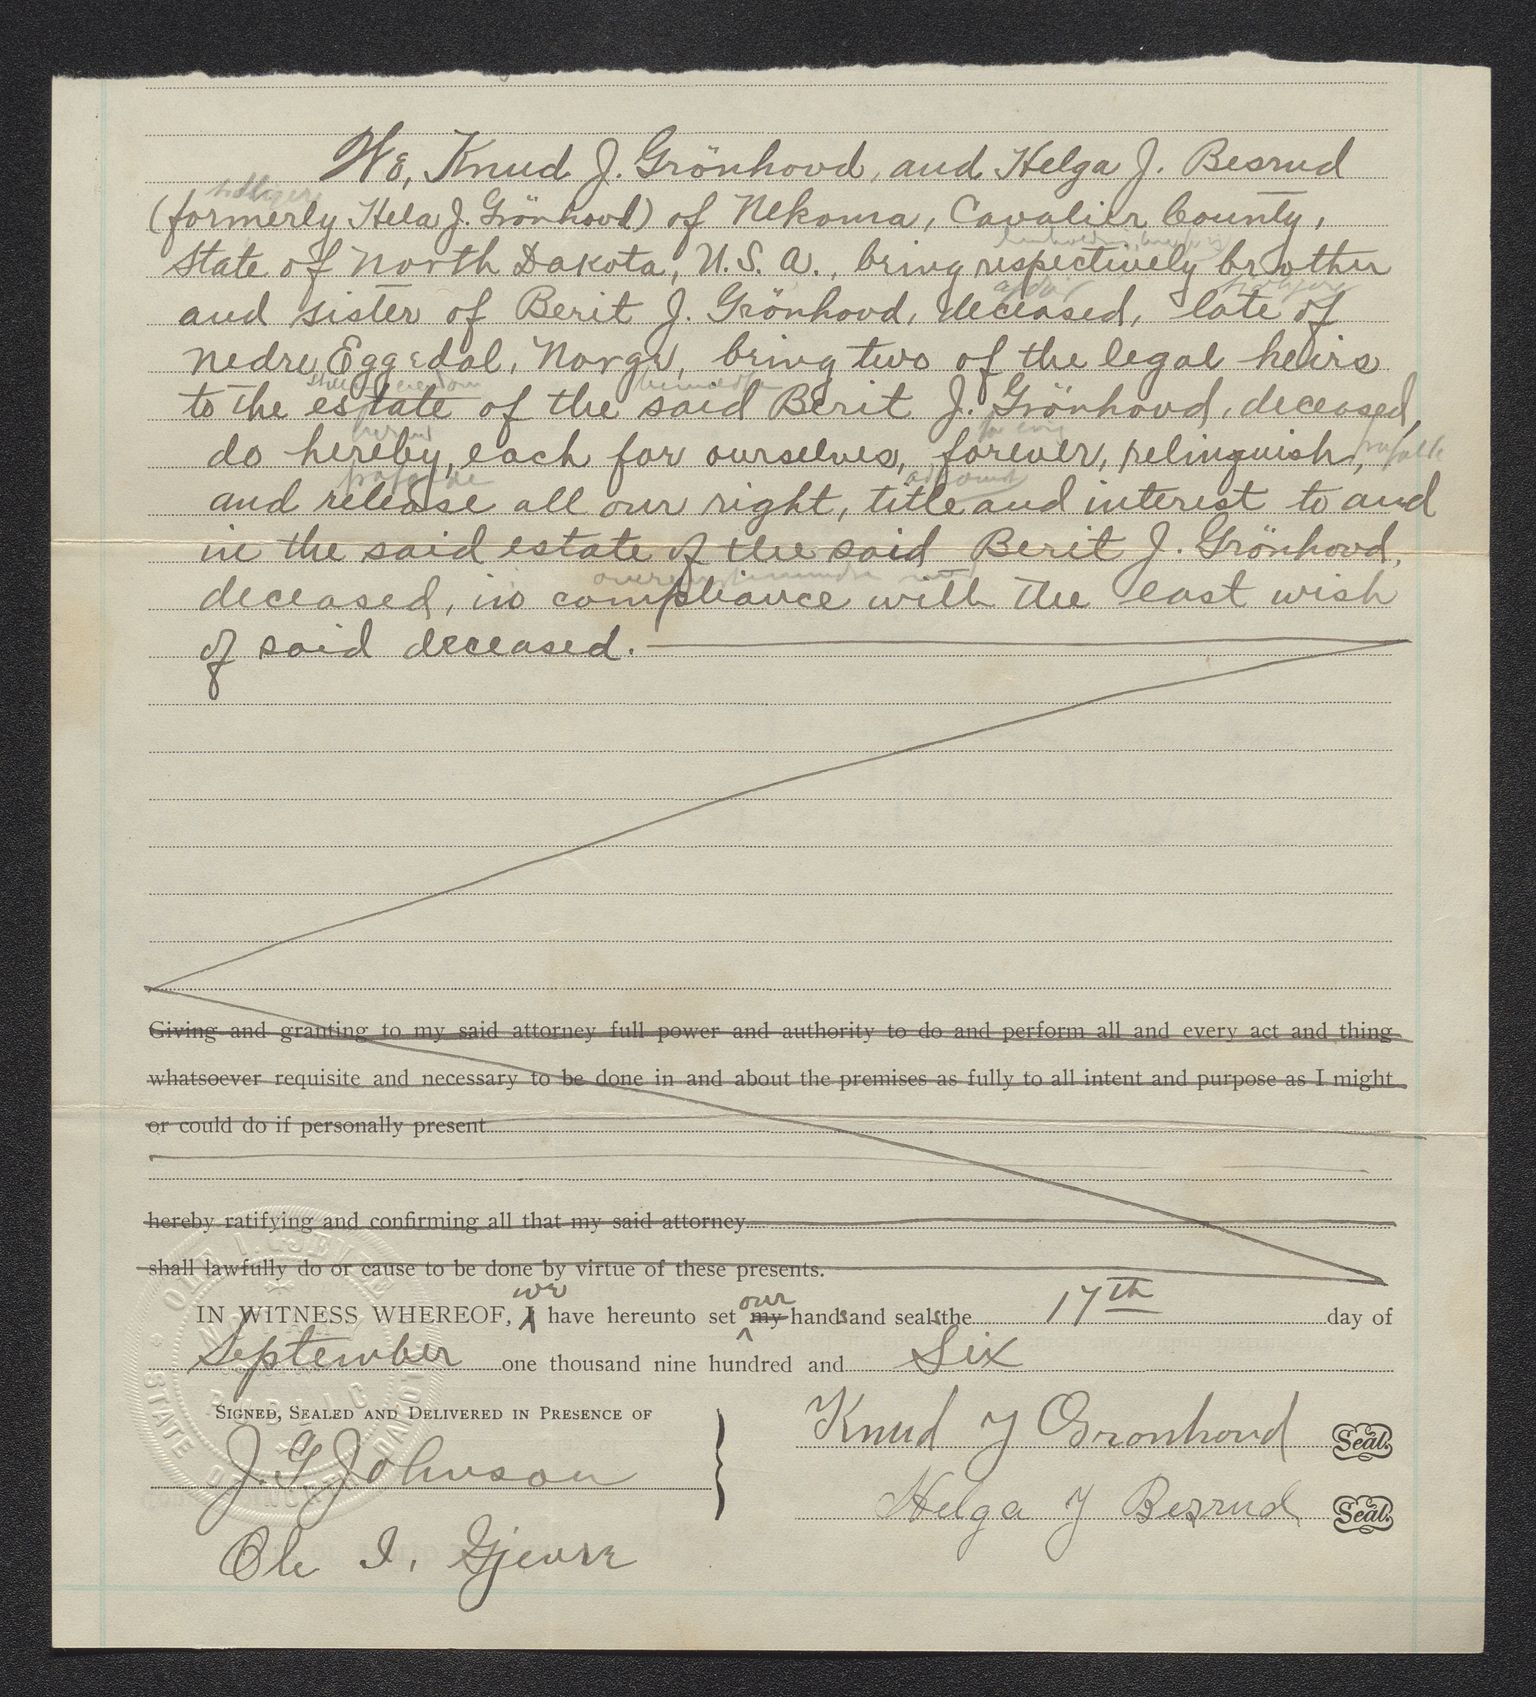 We, Knud J. Grönhovd, and Helga J. Besrud
(formerly Hela J. Grönhovd) of Nekoma, Cavalier County,
State of North Dakota, U.S.A., being respectively brother
and sister of Berit J. Grönhovd, deceased, late of
Nedre Eggedal, Norge, being two of the legal heirs
to the estate of the said Berit J. Grönhovd, deceased,
do hereby, each for ourselves, forever, relinquish,
and release all our right, title and interest to and
in the said estate of the said Berit J. Grönhovd,
deceased, in compliance with the last wish
of said deceased.
Giving and granting to my said attorney full power and authority to do and perform all and every act and thing
whatsoever requisite and necessary to be done in and about the premises as fully to all intent and purpose as I might
or could do if personally present
hereby ratifying and confirming all that my said attorney
shall lawfully do or cause to be done by virtue of these presents.
we our
IN WITNESS WHEREOF, I have hereunto set my hands and seals the 17th day of
September one thousand nine hundred and Six
SIGNED, SEALED AND DELIVERED IN PRESENCE OF
Knud J Gronhovd Seal.
J. G. Johnson
Helga J Besrud Seal.
Ole I. Gjevre
OLE I. GJEVRE
NOTARY
PUBLIC
STATE OF NORTH DAKOTA